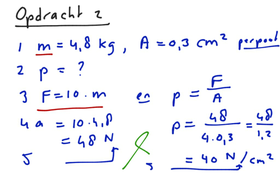 Opdracht 2
1 m = 4,8 kg , A = 0,3 cm² per poot
2 p = ?
3 F = 10 · m en p = F / A
4 a = 10 · 4,8 p = 48 / 4 · 0,3 = 48 / 1,2
= 48 N
5 = 40 N / cm²